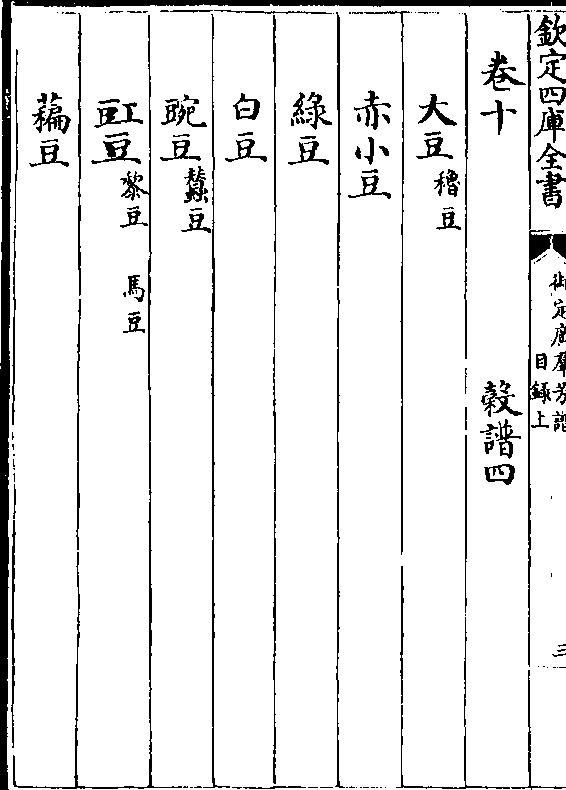 欽定四庫全書
御定廣羣芳譜
目録上
三
卷十 穀譜四
大豆 穭豆
赤小豆
綠豆
白豆
豌豆 蠶豆
豇豆 黎豆 馬豆
藊豆